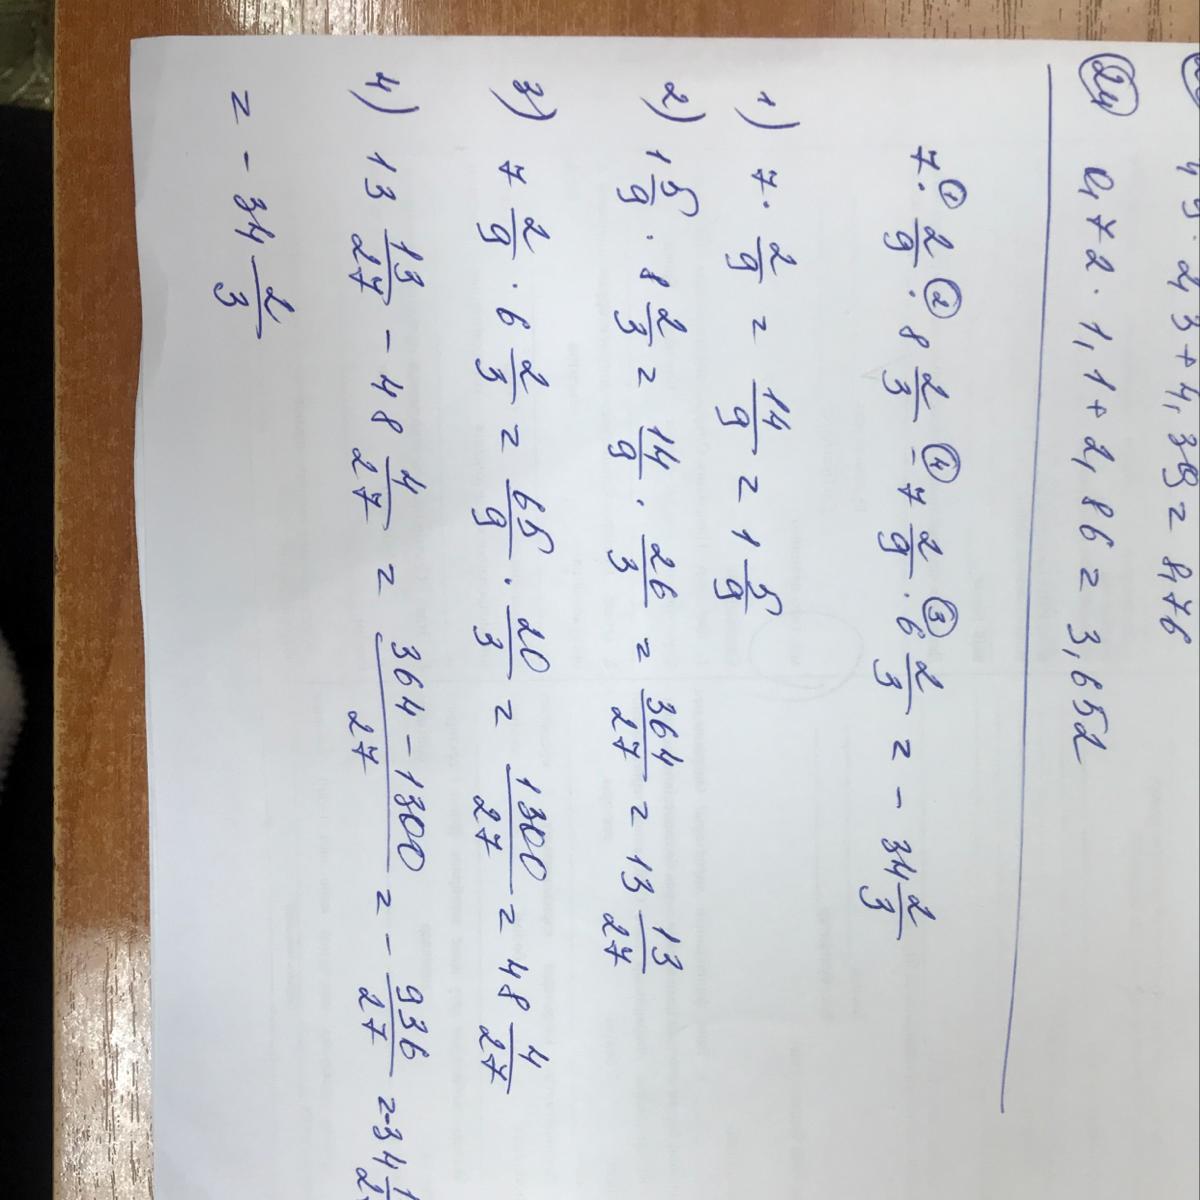 4,3 · 2,3 + 4,39 = 8,76
24 0,72 · 1,1 + 2,86 = 3,652
7 ·① 2/9 ·② 8 2/3 -④ 7 2/9 ·③ 6 2/3 = - 34 2/3
1) 7 · 2/9 = 14/9 = 1 5/9
2) 1 5/9 · 8 2/3 = 14/9 · 26/3 = 364/27 = 13 13/27
3) 7 2/9 · 6 2/3 = 65/9 · 20/3 = 1300/27 = 48 4/27
4) 13 13/27 - 48 4/27 = 364 - 1300/27 = - 936/27 = -34
= - 34 2/3